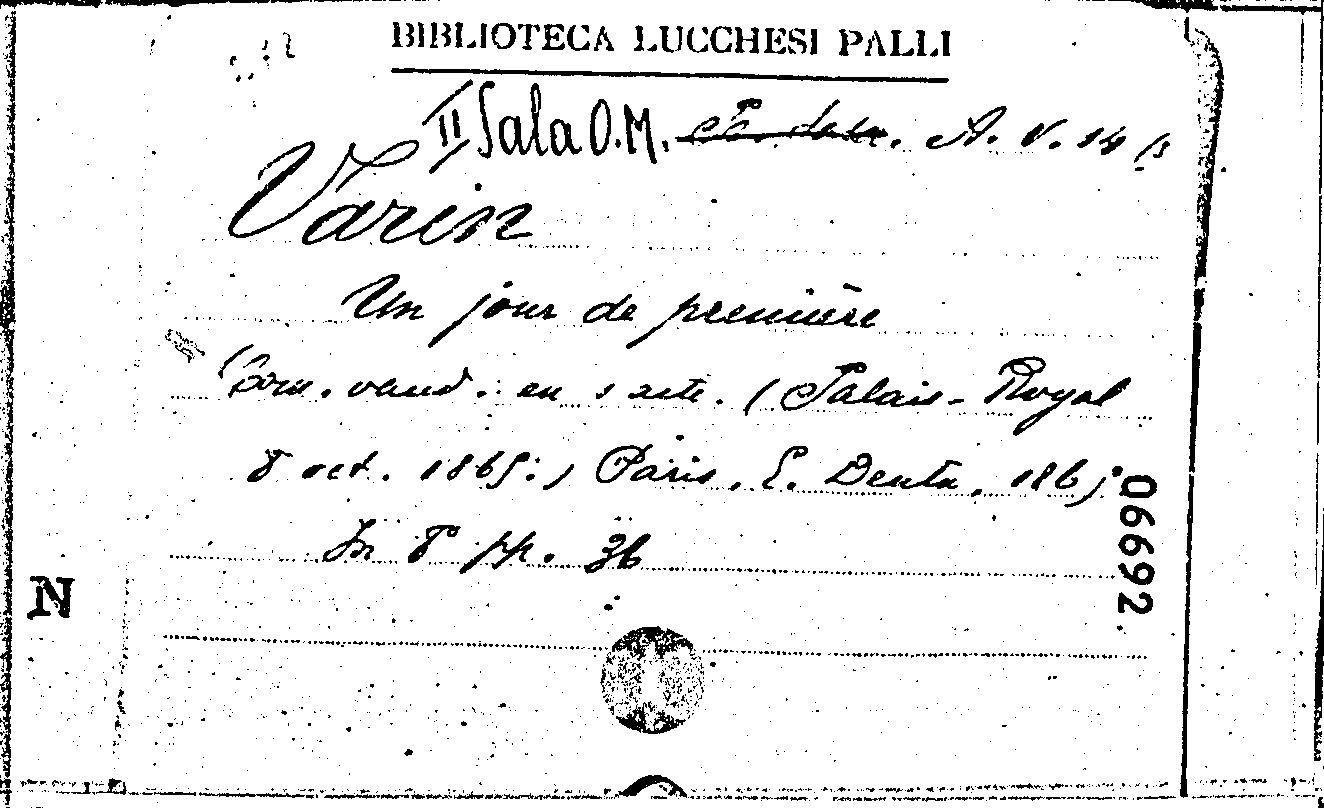 BIBLIOTECA LUCCHESI PALLI
II Sala O.M. A. V. 14
Varin
Un jour de première
Com. vaud. en 1 acte. (Palais-Royal
8 oct. 1865.) Paris, E. Dentu, 1865
In 8° pp. 36
N
06692